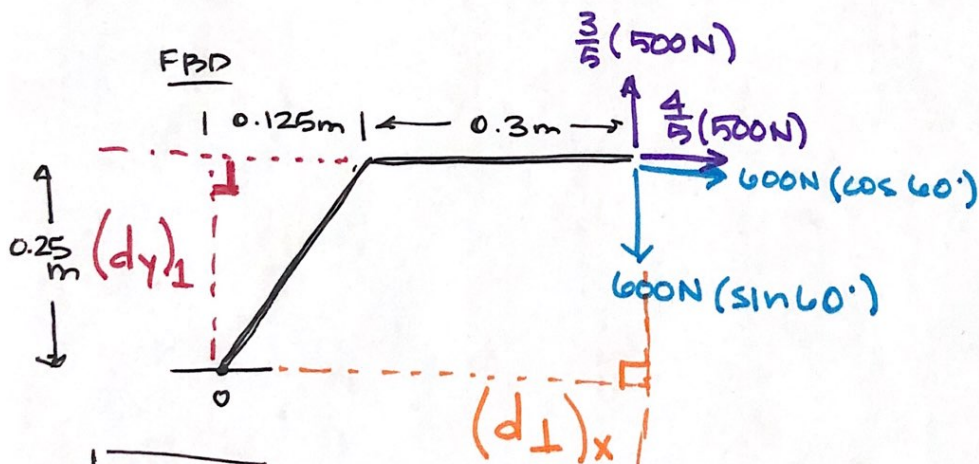 3/5 (500N)
FBD
0.125m
0.3m
4/5 (500N)
600N (cos 60°)
0.25 m
(dy)₁
600N (sin 60°)
O
(d⊥)ₓ